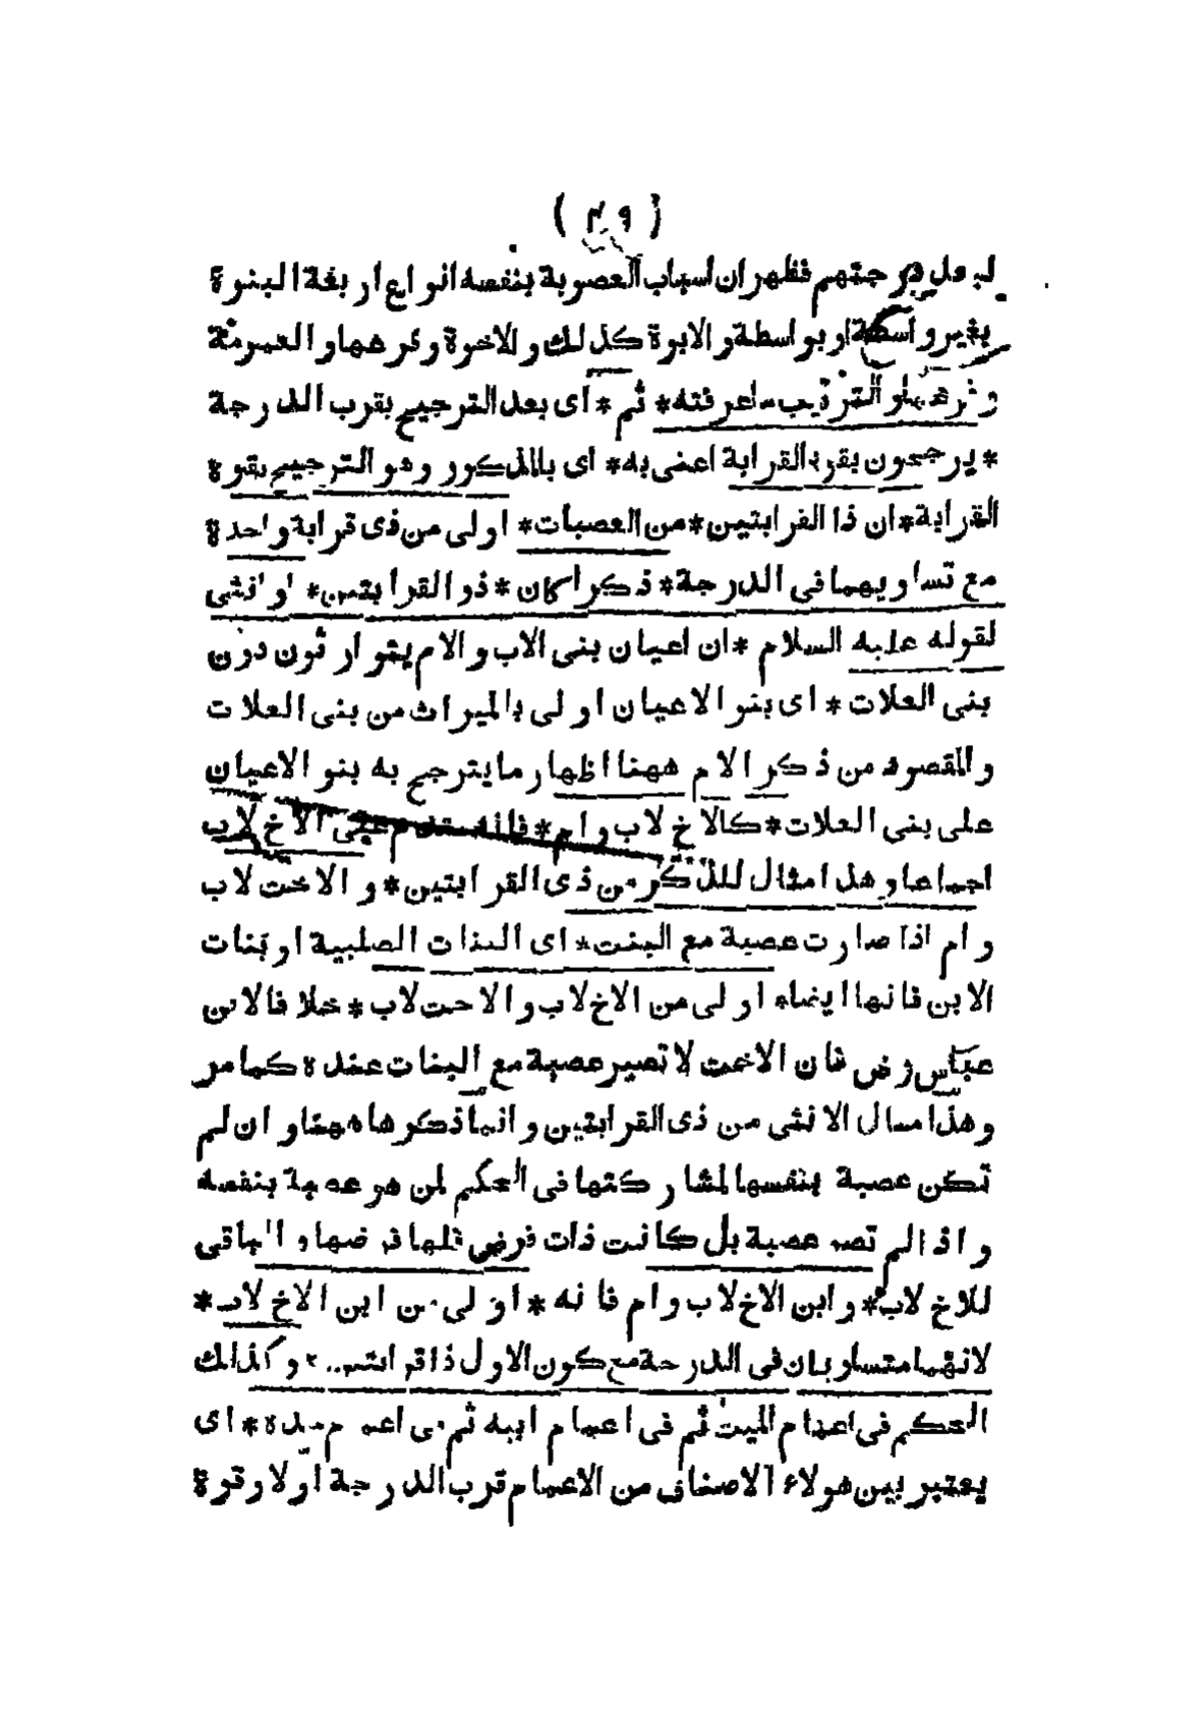 ( ٤٩ )
لبعد درجتهم فظهر ان اسباب العصوبة بنفسه انواع اربعة البنوة
بغير واسطة او بواسطة والابوة كذلك والاخوة وفرعها والعمومة
وفرعها والترتيب ماعرفته * ثم * اى بعد الترجيح بقرب الدرجة
* يرجحون بقوة القرابة اعنى به * اى بالمذكور وهو الترجيح بقوة
القرابة * ان ذا القرابتين * من العصبات * اولى من ذى قرابة واحدة
مع تساويهما فى الدرجة * ذكرا كان * ذو القرابتين * او انثى
لقوله عليه السلام * ان اعيان بنى الاب والام يتوارثون دون
بنى العلات * اى بنو الاعيان اولى بالميراث من بنى العلات
والمقصود من ذكر الام ههنا اظهار ما يترجح به بنو الاعيان
على بنى العلات * كالاخ لاب وام * فانه مقدم على الاخ لاب
اجماعا وهذا مثال للذكر من ذى القرابتين * والاخت لاب
وام اذا صارت عصبة مع البنت * اى البنات الصلبية او بنات
الابن فانها ايضاء اولى من الاخ لاب والاخت لاب * خلافا لابن
عباس رض فان الاخت لا تصير عصبة مع البنات عنده كما مر
وهذا مثال الانثى من ذى القرابتين وانما ذكرها ههنا وان لم
تكن عصبة بنفسها لمشاركتها فى الحكم لمن هو عصبة بنفسه
واذا لم تصر عصبة بل كانت ذات فرض فلها فرضها والباقى
للاخ لاب * وابن الاخ لاب وام فانه * اولى من ابن الاخ لاب *
لانهما متساويان فى الدرجة مع كون الاول ذا قرابتين * وكذلك
الحكم فى اعمام الميت ثم فى اعمام ابيه ثم فى اعمام جده * اى
يعتبر بين هولاء الاصناف من الاعمام قرب الدرجة اولا وقوة